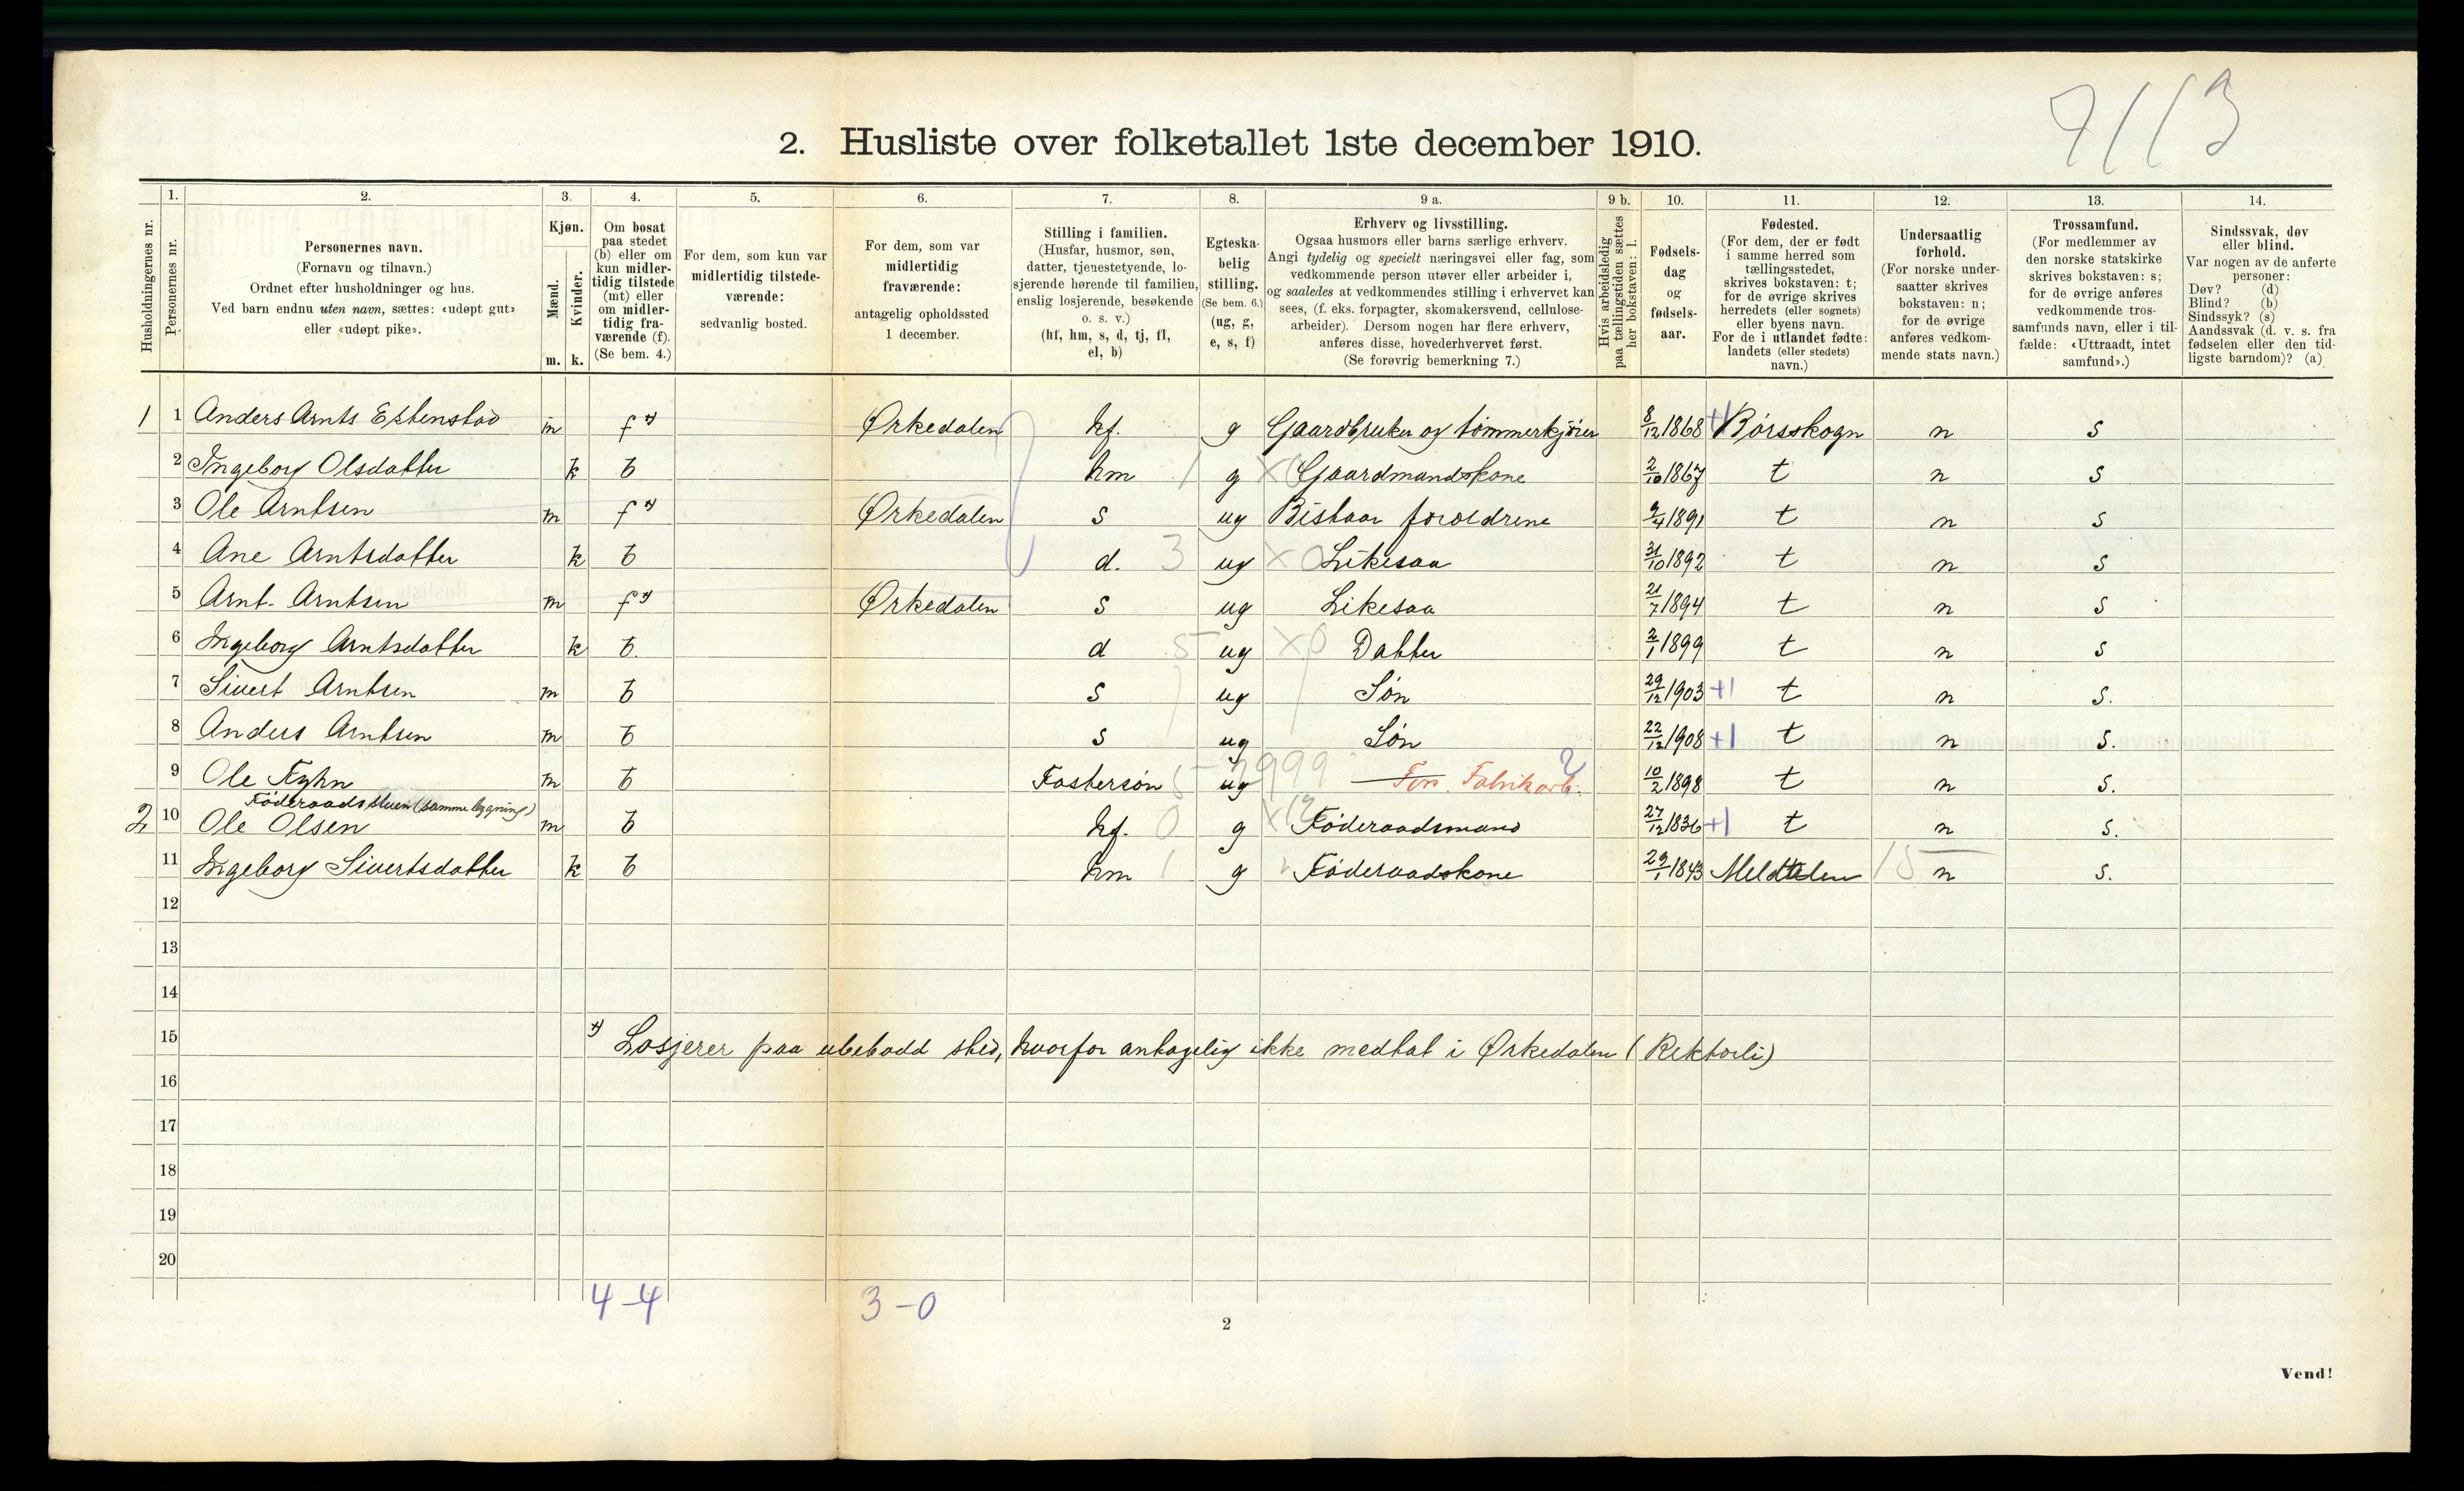 7113
2. Husliste over folketallet 1ste december 1910.
1. 2. 3. 4. 5. 6. 7. 8. 9 a. 9 b. 10. 11. 12. 13. 14.
Husholdningernes nr.
Personernes nr.
Personernes navn.
(Fornavn og tilnavn.)
Ordnet efter husholdninger og hus.
Ved barn endnu uten navn, sættes: «udøpt gut»
eller «udøpt pike».
Kjøn.
Mænd.
Kvinder.
m. k.
Om bosat
paa stedet
(b) eller om
kun midler-
tidig tilstede
(mt) eller
om midler-
tidig fra-
værende (f).
(Se bem. 4.)
For dem, som kun var
midlertidig tilstede-
værende:
sedvanlig bosted.
For dem, som var
midlertidig
fraværende:
antagelig opholdssted
1 december.
Stilling i familien.
(Husfar, husmor, søn,
datter, tjenestetyende, lo-
sjerende hørende til familien,
enslig losjerende, besøkende
o. s. v.)
(hf, hm, s, d, tj, fl,
el, b)
Egteska-
belig
stilling.
(Se bem. 6.)
(ug, g,
e, s, f)
Erhverv og livsstilling.
Ogsaa husmors eller barns særlige erhverv.
Angi tydelig og specielt næringsvei eller fag, som
vedkommende person utøver eller arbeider i,
og saaledes at vedkommendes stilling i erhvervet kan
sees, (f. eks. forpagter, skomakersvend, cellulose-
arbeider). Dersom nogen har flere erhverv,
anføres disse, hovederhvervet først.
(Se forøvrig bemerkning 7.)
Hvis arbeidsledig
paa tællingstiden sættes
her bokstaven: l.
Fødsels-
dag
og
fødsels-
aar.
Fødested.
(For dem, der er født
i samme herred som
tællingsstedet,
skrives bokstaven: t;
for de øvrige skrives
herredets (eller sognets)
eller byens navn.
For de i utlandet fødte:
landets (eller stedets)
navn.)
Undersaatlig
forhold.
(For norske under-
saatter skrives
bokstaven: n;
for de øvrige
anføres vedkom-
mende stats navn.)
Trossamfund.
(For medlemmer av
den norske statskirke
skrives bokstaven: s;
for de øvrige anføres
vedkommende tros-
samfunds navn, eller i til-
fælde: «Uttraadt, intet
samfund».)
Sindssvak, døv
eller blind.
Var nogen av de anførte
personer:
Døv? (d)
Blind? (b)
Sindssyk? (s)
Aandssvak (d. v. s. fra
fødselen eller den tid-
ligste barndom)? (a)
1 1 Anders Arnts Estenstad m f *) Ørkedalen hf. g Gaardbruker og tømmerkjører 8/12 1868 Børsskogn n s
2 Ingeborg Olsdatter k b hm 1 g Gaardmandskone 2/10 1867 t n s
3 Ole Arntsen m f *) Ørkedalen s ug Bistaar forældrene 9/4 1891 t n s
4 Ane Arntsdatter k b d. 3 ug Likesaa 31/10 1892 t n s
5 Arnt Arntsen m f *) Ørkedalen s ug Likesaa 21/7 1894 t n s
6 Ingeborg Arntsdatter k b. d 5 ug Datter 2/1 1899 t n s
7 Sivert Arntsen m b s ug Søn 29/12 1903 +1 t n s.
8 Anders Arntsen m b s ug Søn 22/12 1908 +1 t n s.
9 Ole Fyhn m b Fostersøn ug 9999 Fabrikarb. 2 10/2 1898 t n s.
Föderaadstuen (samme bygning)
2 10 Ole Olsen m b hf. 0 g Föderaadsmand 27/12 1836 +1 t n s.
11 Ingeborg Sivertsdatter k b hm 1 g Föderaadskone 29/1 1843 Meldalen 15 n s.
12
13
14
15
*) Losjerer paa ubebodd sted, hvorfor antagelig ikke medtat i Ørkedalen (Rektorli)
16
17
18
19
20
4-4 3-0
2
Vend!